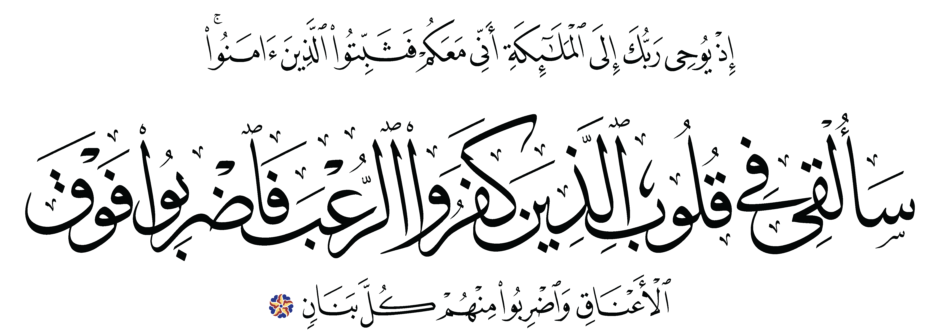 إِذْ يُوحِى رَبُّكَ إِلَى ٱلْمَلَـٰٓئِكَةِ أَنِّى مَعَكُمْ فَثَبِّتُوا۟ ٱلَّذِينَ ءَامَنُوا۟ ۚ
سَأُلْقِى فِى قُلُوبِ ٱلَّذِينَ كَفَرُوا۟ ٱلرُّعْبَ فَٱضْرِبُوا۟ فَوْقَ
ٱلْأَعْنَاقِ وَٱضْرِبُوا۟ مِنْهُمْ كُلَّ بَنَانٍ